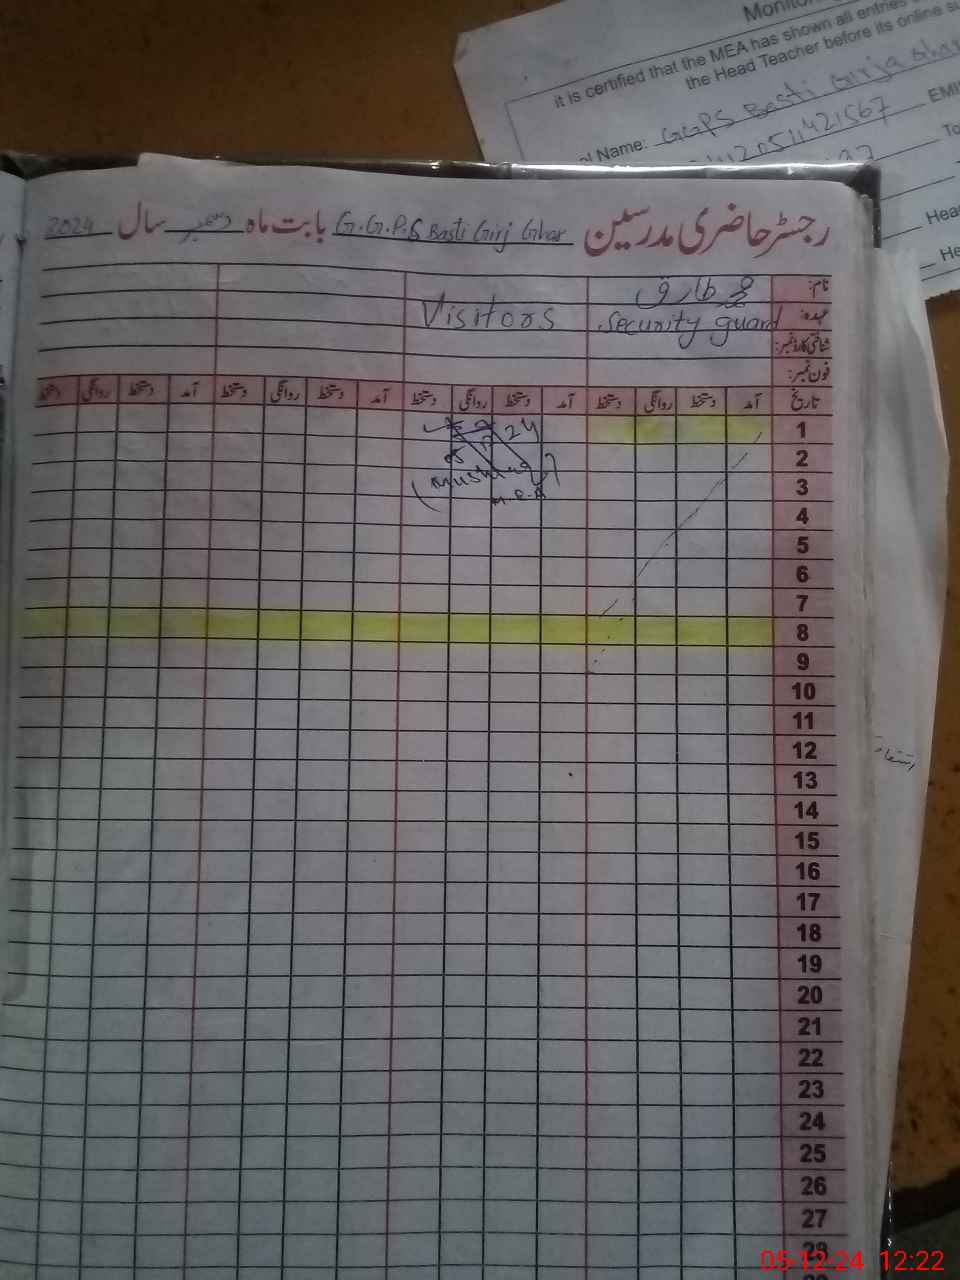 Monitor
it is certified that the MEA has shown all entries
the Head Teacher before its online su
ol Name: GGPS Basti Girja Ghar
EMIS
20511421567
To
Hea
He
رجسٹر حاضری مدرسین G.G.P.S Basti Girj Ghar بابت ماہ دسمبر سال 2024
نام: محمد طارق
عہدہ: Security guard Visitors
شناختی کارڈ نمبر:
فون نمبر:
تاریخ آمد دستخط روانگی دستخط آمد دستخط روانگی دستخط آمد دستخط روانگی دستخط آمد دستخط روانگی دستخط
1
24
2
3
M.E.A
4
5
6
7
8
9
10
11
12
13
14
15
16
17
18
19
20
21
22
23
24
25
26
27
28
05-12-24 12:22